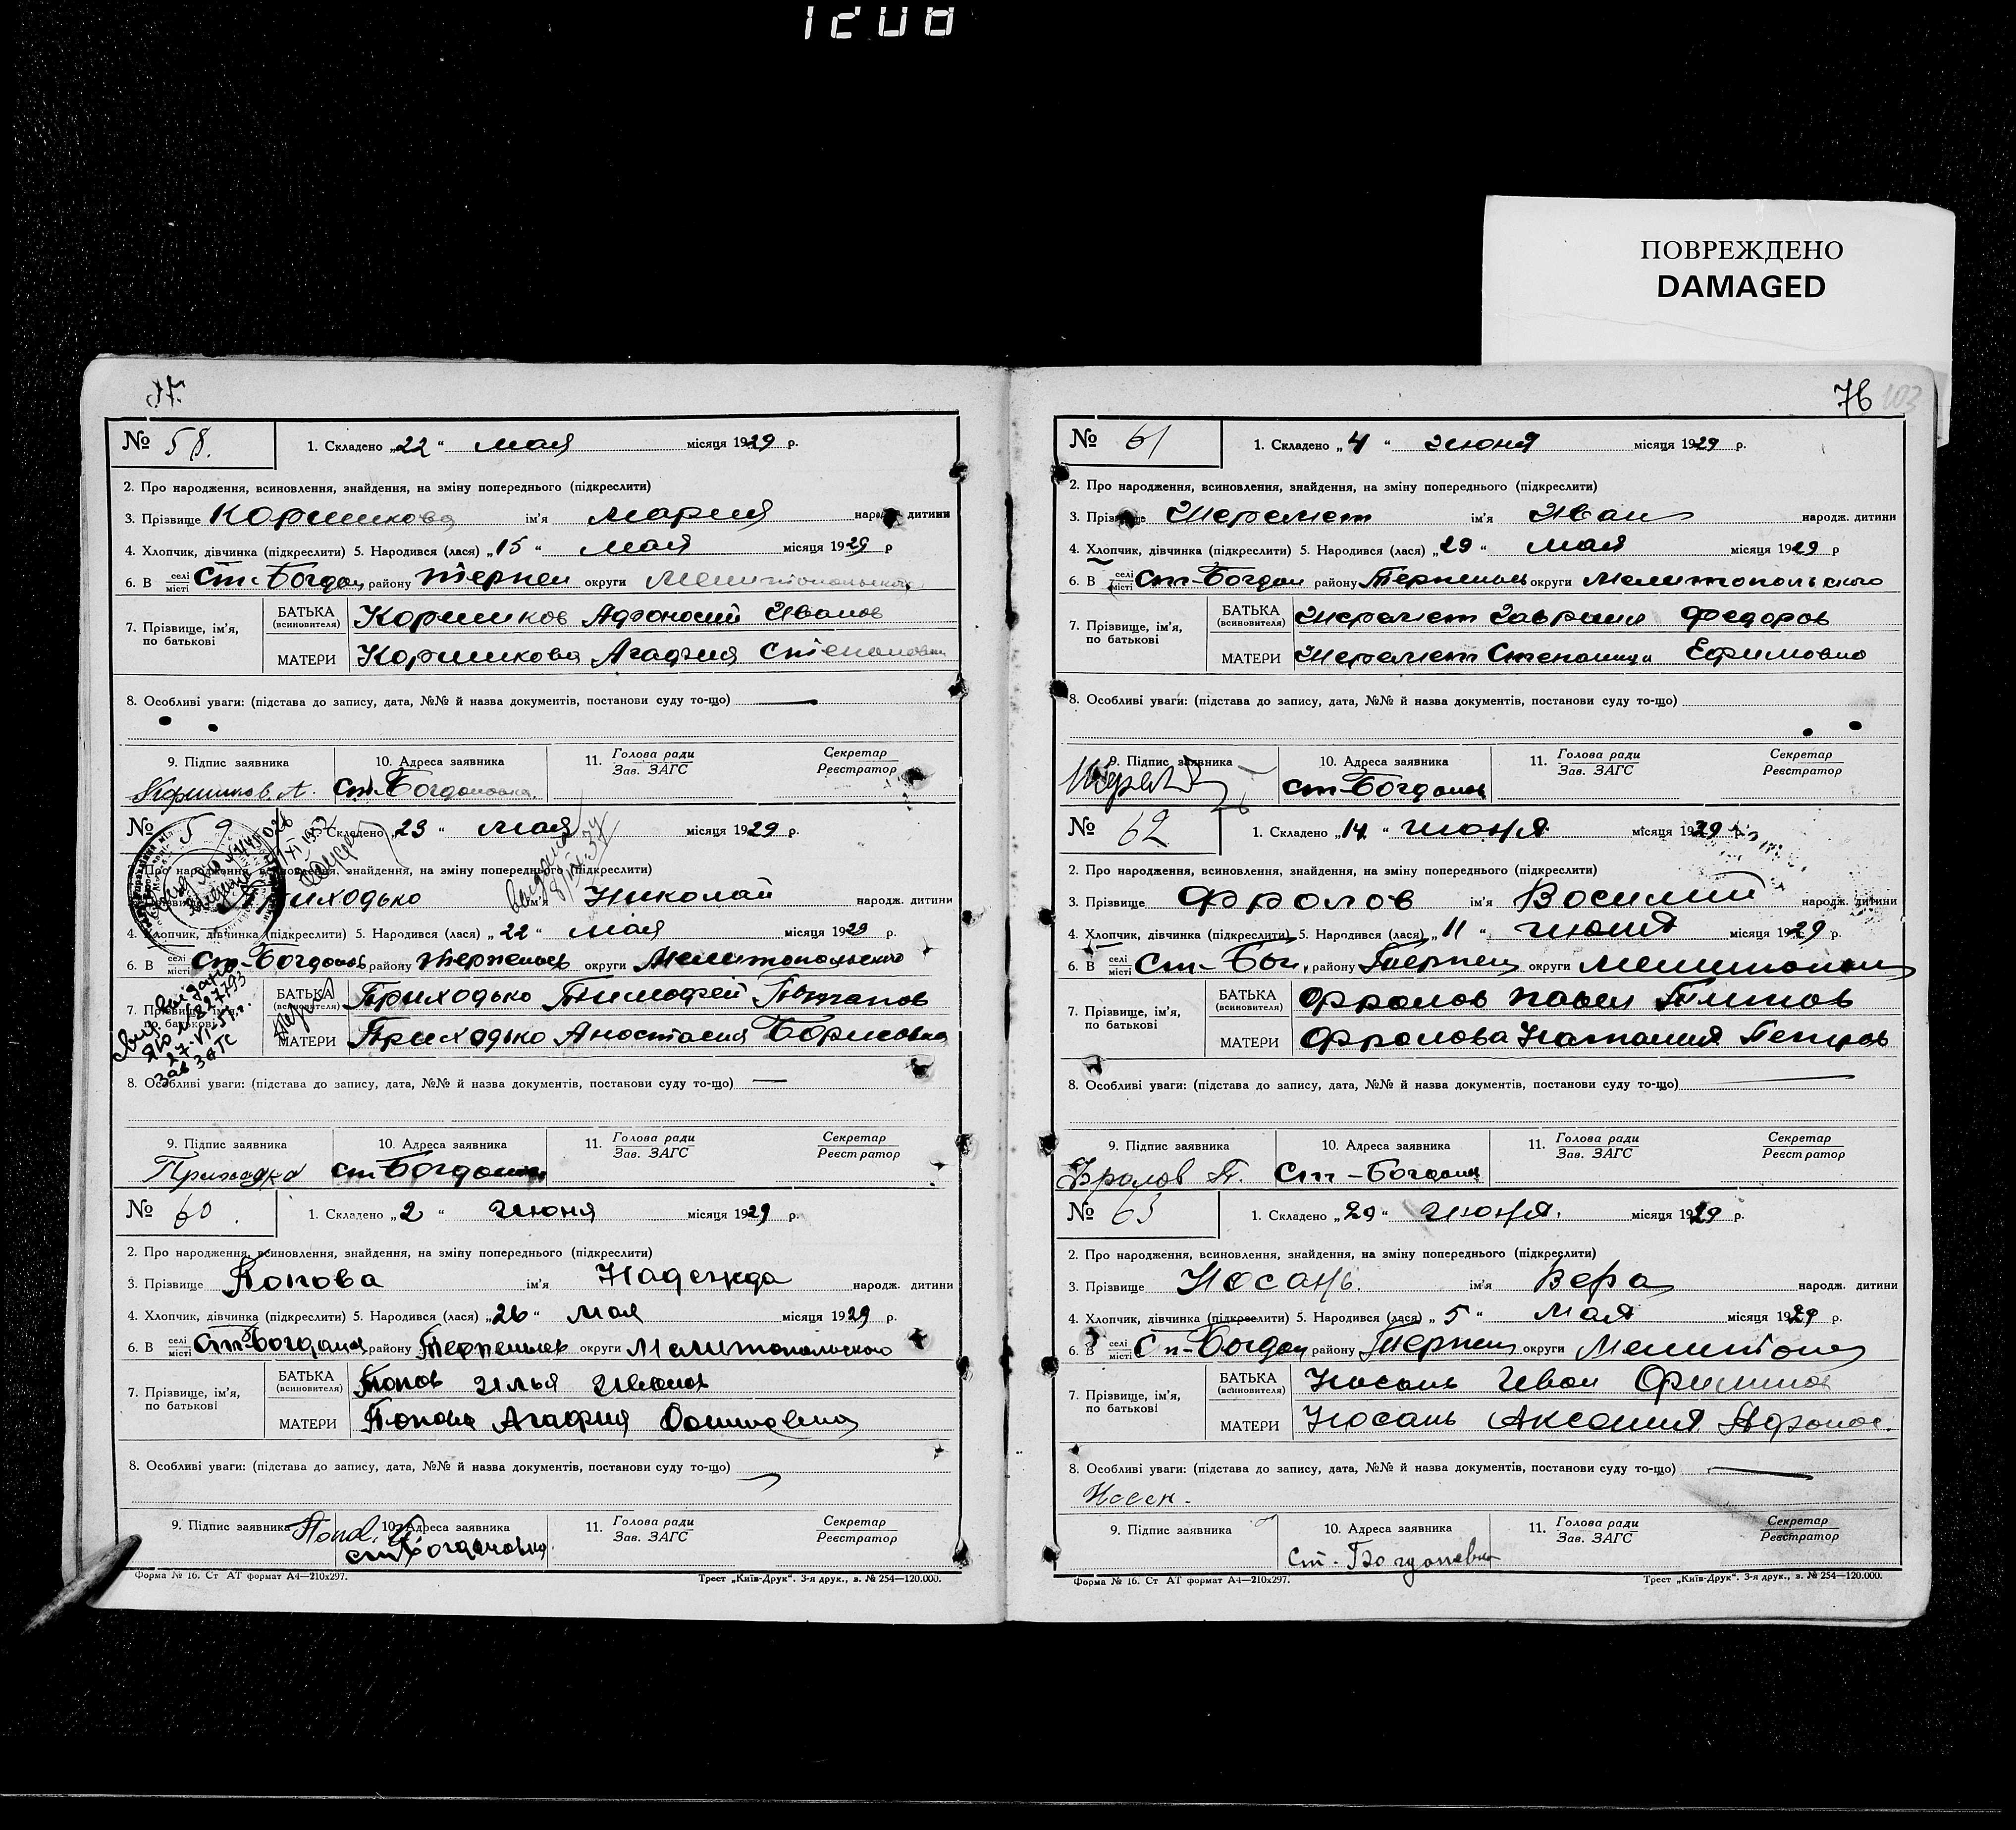 1208
ПОВРЕЖДЕНО
DAMAGED
№ 58.
1. Складено „22“ мая місяця 1929 р.
2. Про народження, всиновлення, знайдення, на зміну попереднього (підкреслити)
3. Прізвище Коршикова ім'я Мария народж. дитини
4. Хлопчик, дівчинка (підкреслити) 5. Народився (лася) „15“ мая місяця 1929 р
6. В селі місті Ст-Богдан району Терпен округи Мелитопольского
7. Прізвище, ім'я, по батькові
БАТЬКА (всиновителя) Коршиков Афоносий Иванов
МАТЕРИ Коршикова Агафия Степановна
8. Особливі уваги: (підстава до запису, дата, №№ й назва документів, постанови суду то-що) —
9. Підпис заявника 10. Адреса заявника 11. Голова ради Зав. ЗАГС Секретар Реєстратор
Коршиков. А. Ст. Богдановка.
№ 59
1. Складено „23“ мая місяця 1929 р.
2. Про народження, всиновлення, знайдення, на зміну попереднього (підкреслити)
3. Прізвище Приходько ім'я Николай народж. дитини
4. Хлопчик, дівчинка (підкреслити) 5. Народився (лася) „22“ мая місяця 1929 р.
6. В селі місті Ст-Богданов району Терпеньев округи Мелитопольского
7. Прізвище, ім'я, по батькові
БАТЬКА (всиновителя) Приходько Тимофей
МАТЕРИ Приходько Аностасия Борисовна
27-VI-51г.
Зав ЗАГС
8. Особливі уваги: (підстава до запису, дата, №№ й назва документів, постанови суду то-що) —
9. Підпис заявника 10. Адреса заявника 11. Голова ради Зав. ЗАГС Секретар Реєстратор
Приходко ст Богданов
№ 60.
1. Складено „2“ Июня місяця 1929 р.
2. Про народження, всиновлення, знайдення, на зміну попереднього (підкреслити)
3. Прізвище Попова ім'я Надежда народж. дитини
4. Хлопчик, дівчинка (підкреслити) 5. Народився (лася) „26“ мая місяця 1929 р.
6. В селі місті Ст-Богданов району Терпеньев округи Мелитопольского
7. Прізвище, ім'я, по батькові
БАТЬКА (всиновителя) Попов Илья Иванов
МАТЕРИ Попова Агафия
8. Особливі уваги: (підстава до запису, дата, №№ й назва документів, постанови суду то-що)
9. Підпис заявника 10. Адреса заявника 11. Голова ради Зав. ЗАГС Секретар Реєстратор
ст Богдановка
Форма № 16. Ст АТ формат А4—210х297. Трест „Київ-Друк“. 3-я друк., в. № 254—120.000.
76 103
№ 61
1. Складено „4“ Июня місяця 1929 р.
2. Про народження, всиновлення, знайдення, на зміну попереднього (підкреслити)
3. Прізвище Шеремет ім'я Иван народж. дитини
4. Хлопчик, дівчинка (підкреслити) 5. Народився (лася) „29“ мая місяця 1929 р
6. В селі місті Ст-Богдан району Терпеньев округи Мелитопольского
7. Прізвище, ім'я, по батькові
БАТЬКА (всиновителя) Шеремет Гавриил Федоров
МАТЕРИ Шеремет Степанида Ефимовна
8. Особливі уваги: (підстава до запису, дата, №№ й назва документів, постанови суду то-що)
9. Підпис заявника 10. Адреса заявника 11. Голова ради Зав. ЗАГС Секретар Реєстратор
ст-Богданов
№ 62
1. Складено „14“ июня місяця 1929 р.
2. Про народження, всиновлення, знайдення, на зміну попереднього (підкреслити)
3. Прізвище Фролов ім'я Василий народж. дитини
4. Хлопчик, дівчинка (підкреслити) 5. Народився (лася) „11“ июня місяця 1929 р.
6. В селі місті Ст-Бог. району Терпен округи Мелитопол
7. Прізвище, ім'я, по батькові
БАТЬКА (всиновителя) Фролов Павел
МАТЕРИ Фролова Наталия Петров
8. Особливі уваги: (підстава до запису, дата, №№ й назва документів, постанови суду то-що) —
9. Підпис заявника 10. Адреса заявника 11. Голова ради Зав. ЗАГС Секретар Реєстратор
Фролов П. Ст-Богданов
№ 63
1. Складено „29“ июня. місяця 1929 р.
2. Про народження, всиновлення, знайдення, на зміну попереднього (підкреслити)
3. Прізвище Носань. ім'я Вера народж. дитини
4. Хлопчик, дівчинка (підкреслити) 5. Народився (лася) „5“ мая місяця 1929 р.
6. В селі місті Ст-Богдан району Терпен округи Мелитопол
7. Прізвище, ім'я, по батькові
БАТЬКА (всиновителя) Носань Иван Филипов
МАТЕРИ Носань Аксения Афонос.
8. Особливі уваги: (підстава до запису, дата, №№ й назва документів, постанови суду то-що) —
9. Підпис заявника 10. Адреса заявника 11. Голова ради Зав. ЗАГС Секретар Реєстратор
ст-Богдановка
Форма № 16. Ст АТ формат А4—210х297. Трест „Київ-Друк“. 3-я друк., в. № 254—120.000.